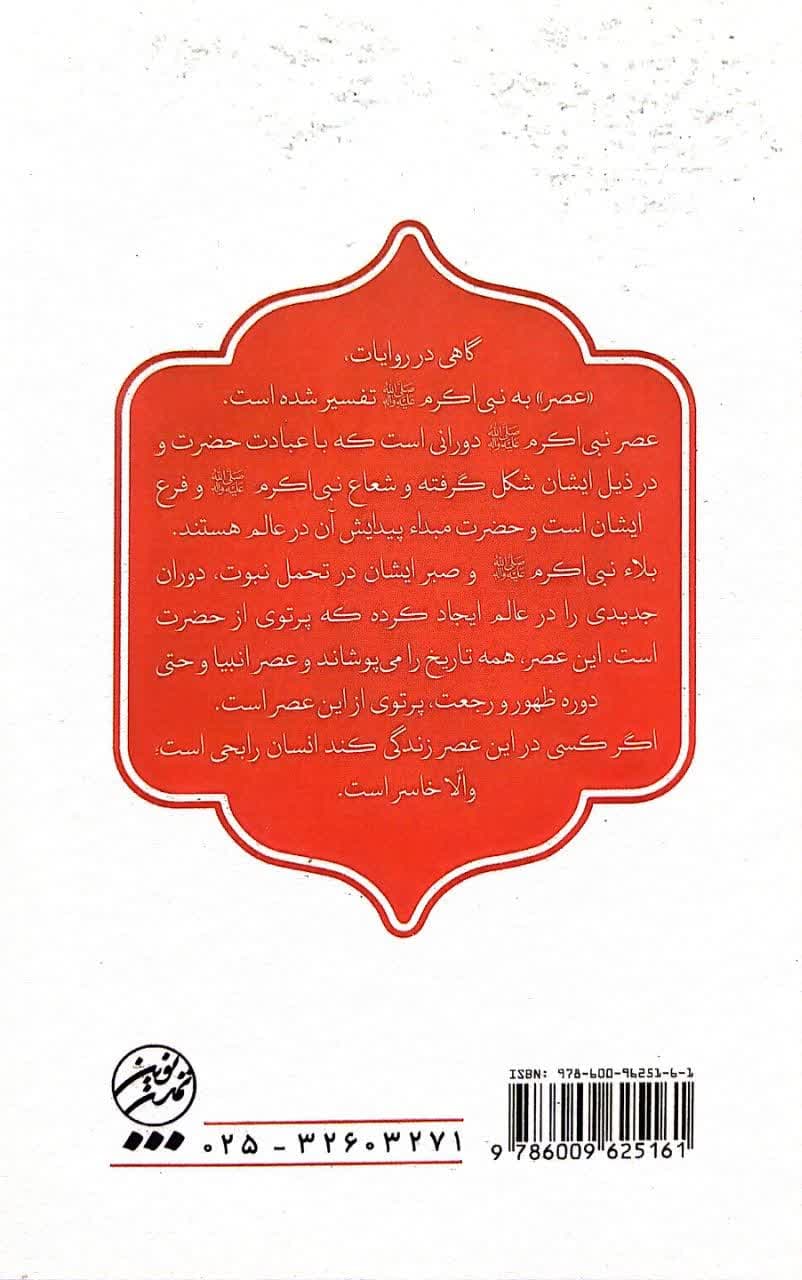 گاهی در روایات،
«عصر» به نبی‌اکرم ﷺ تفسیر شده است.
عصر نبی‌اکرم ﷺ دورانی است که با عبادت حضرت و
در ذیل ایشان شکل گرفته و شعاع نبی‌اکرم ﷺ و فرع
ایشان است و حضرت مبداء پیدایش آن در عالم هستند.
بلاء نبی‌اکرم ﷺ و صبر ایشان در تحمل نبوت، دوران
جدیدی را در عالم ایجاد کرده که پرتوی از حضرت
است. این عصر، همه تاریخ را می‌پوشاند و عصر انبیا و حتی
دوره ظهور و رجعت، پرتوی از این عصر است.
اگر کسی در این عصر زندگی کند انسان رابحی است؛
والّا خاسر است.
تمدن نوین
۰۲۵ - ۳۲۶۰۳۲۷۱
ISBN: 978-600-96251-6-1
9 786009 625161